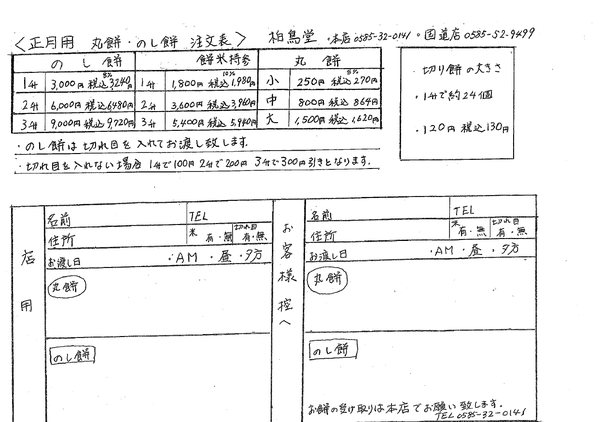 ＜正月用 丸餅・のし餅 注文表＞ 柏鳥堂 ・本店0585-32-0141 ・国道店0585-52-9499
のし餅 餅米持参 丸餅
1升 3,000円 8% 税込3,240円 1升 1,800円 10% 税込1,980円 小 250円 8% 税込270円
2升 6,000円 税込6,480円 2升 3,600円 税込3,960円 中 800円 税込864円
3升 9,000円 税込9,720円 3升 5,400円 税込5,940円 大 1,500円 税込1,620円
・のし餅は切れ目を入れてお渡し致します。
・切れ目を入れない場合 1升で100円 2升で200円 3升で300円引きとなります。
切り餅の大きさ
・1升で約24個
・120円 税込130円
店用
名前 TEL
住所 米 有・無 切れ目 有・無
お渡し日 ・AM ・昼 ・夕方
丸餅
のし餅
お客様控へ
名前 TEL
住所 米 有・無 切れ目 有・無
お渡し日 ・AM ・昼 ・夕方
丸餅
のし餅
お餅の受け取りは本店でお願い致します。
TEL0585-32-0141